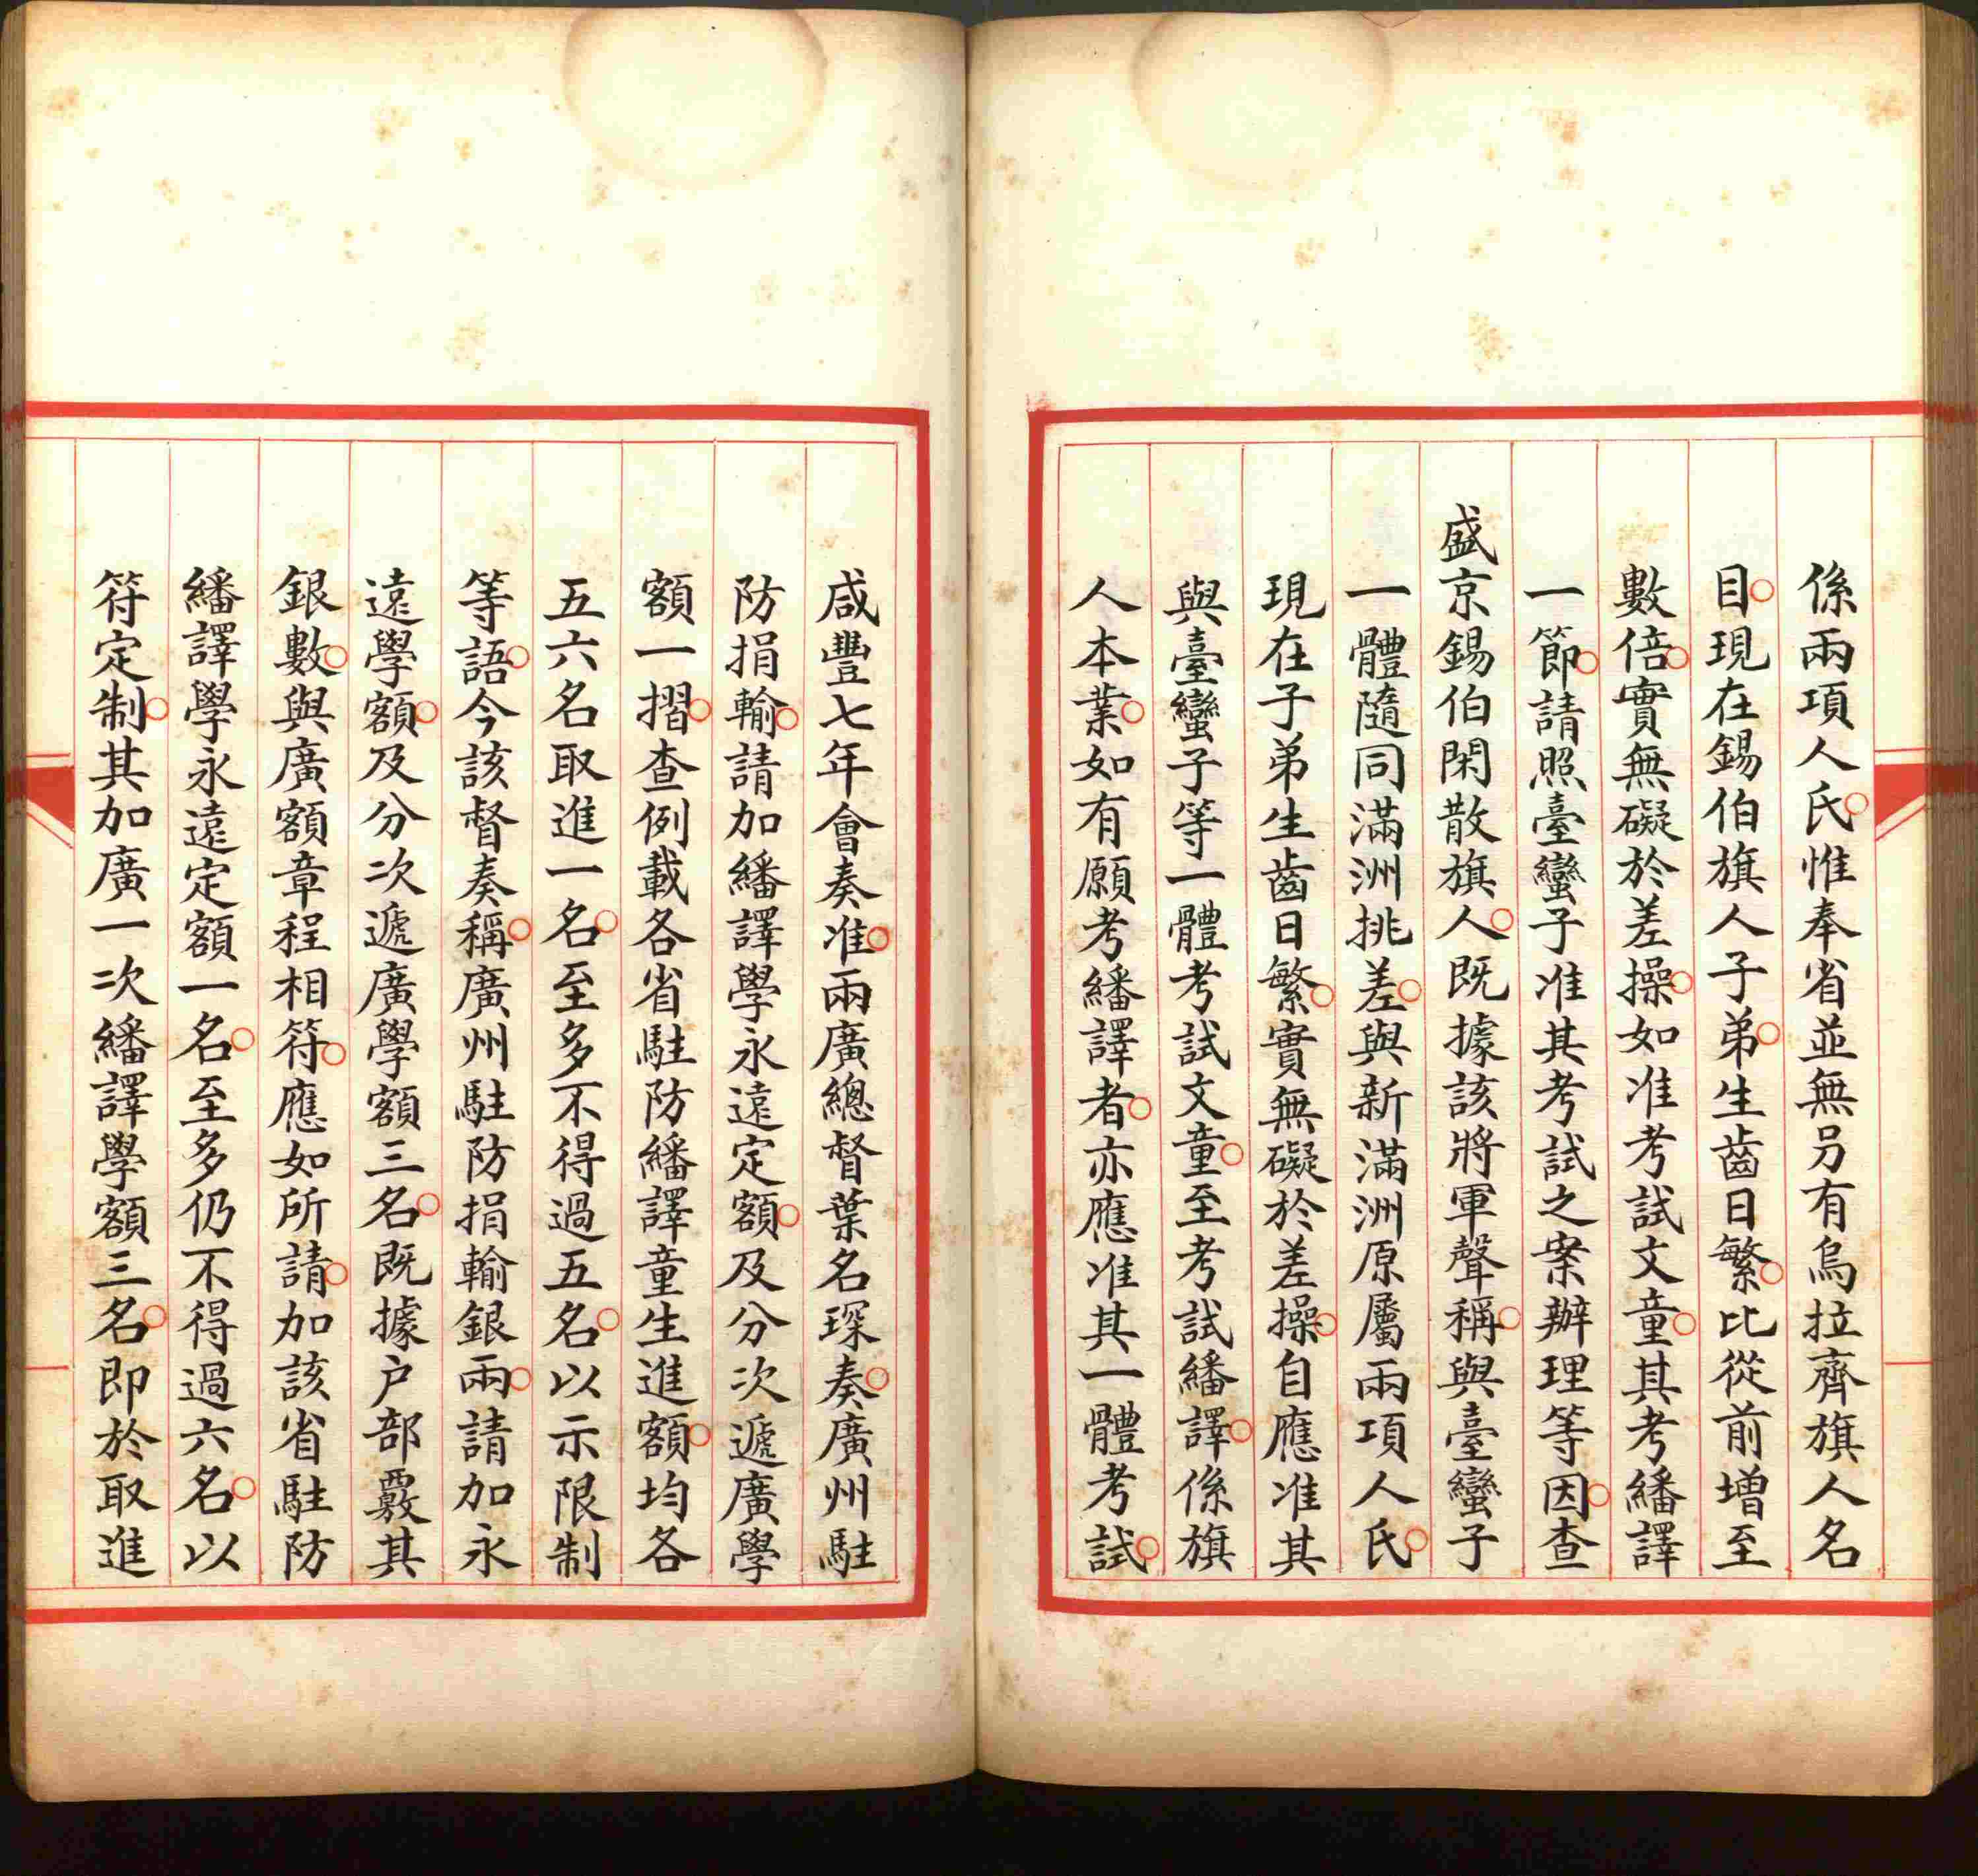 係兩項人氏惟奉省並無另有烏拉齊旗人名
目現在錫伯旗人子弟生齒日繁比從前增至
數倍實無礙於差操如准考試文童其考繙譯
一節請照臺蠻子准其考試之案辦理等因查
盛京錫伯閑散旗人既據該將軍聲稱與臺蠻子
一體隨同滿洲挑差與新滿洲原屬兩項人氏
現在子弟生齒日繁實無礙於差操自應准其
與臺蠻子等一體考試文童至考試繙譯係旗
人本業如有願考繙譯者亦應准其一體考試
咸豐七年會奏准兩廣總督葉名琛奏廣州駐
防捐輸請加繙譯學永遠定額及分次遞廣學
額一摺查例載各省駐防繙譯童生進額均各
五六名取進一名至多不得過五名以示限制
等語今該督奏稱廣州駐防捐輸銀兩請加永
遠學額及分次遞廣學額三名既據户部覈其
銀數與廣額章程相符應如所請加該省駐防
繙譯學永遠定額一名至多仍不得過六名以
符定制其加廣一次繙譯學額三名即於取進